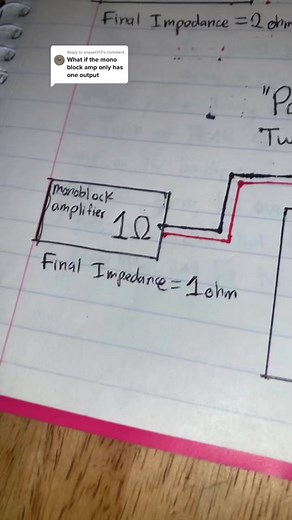 Final Impedance = 2 ohm
Reply to
comment
What if the mono
block amp only has
one output
monoblock
amplifier
1Ω
Final Impedance = 1 ohm